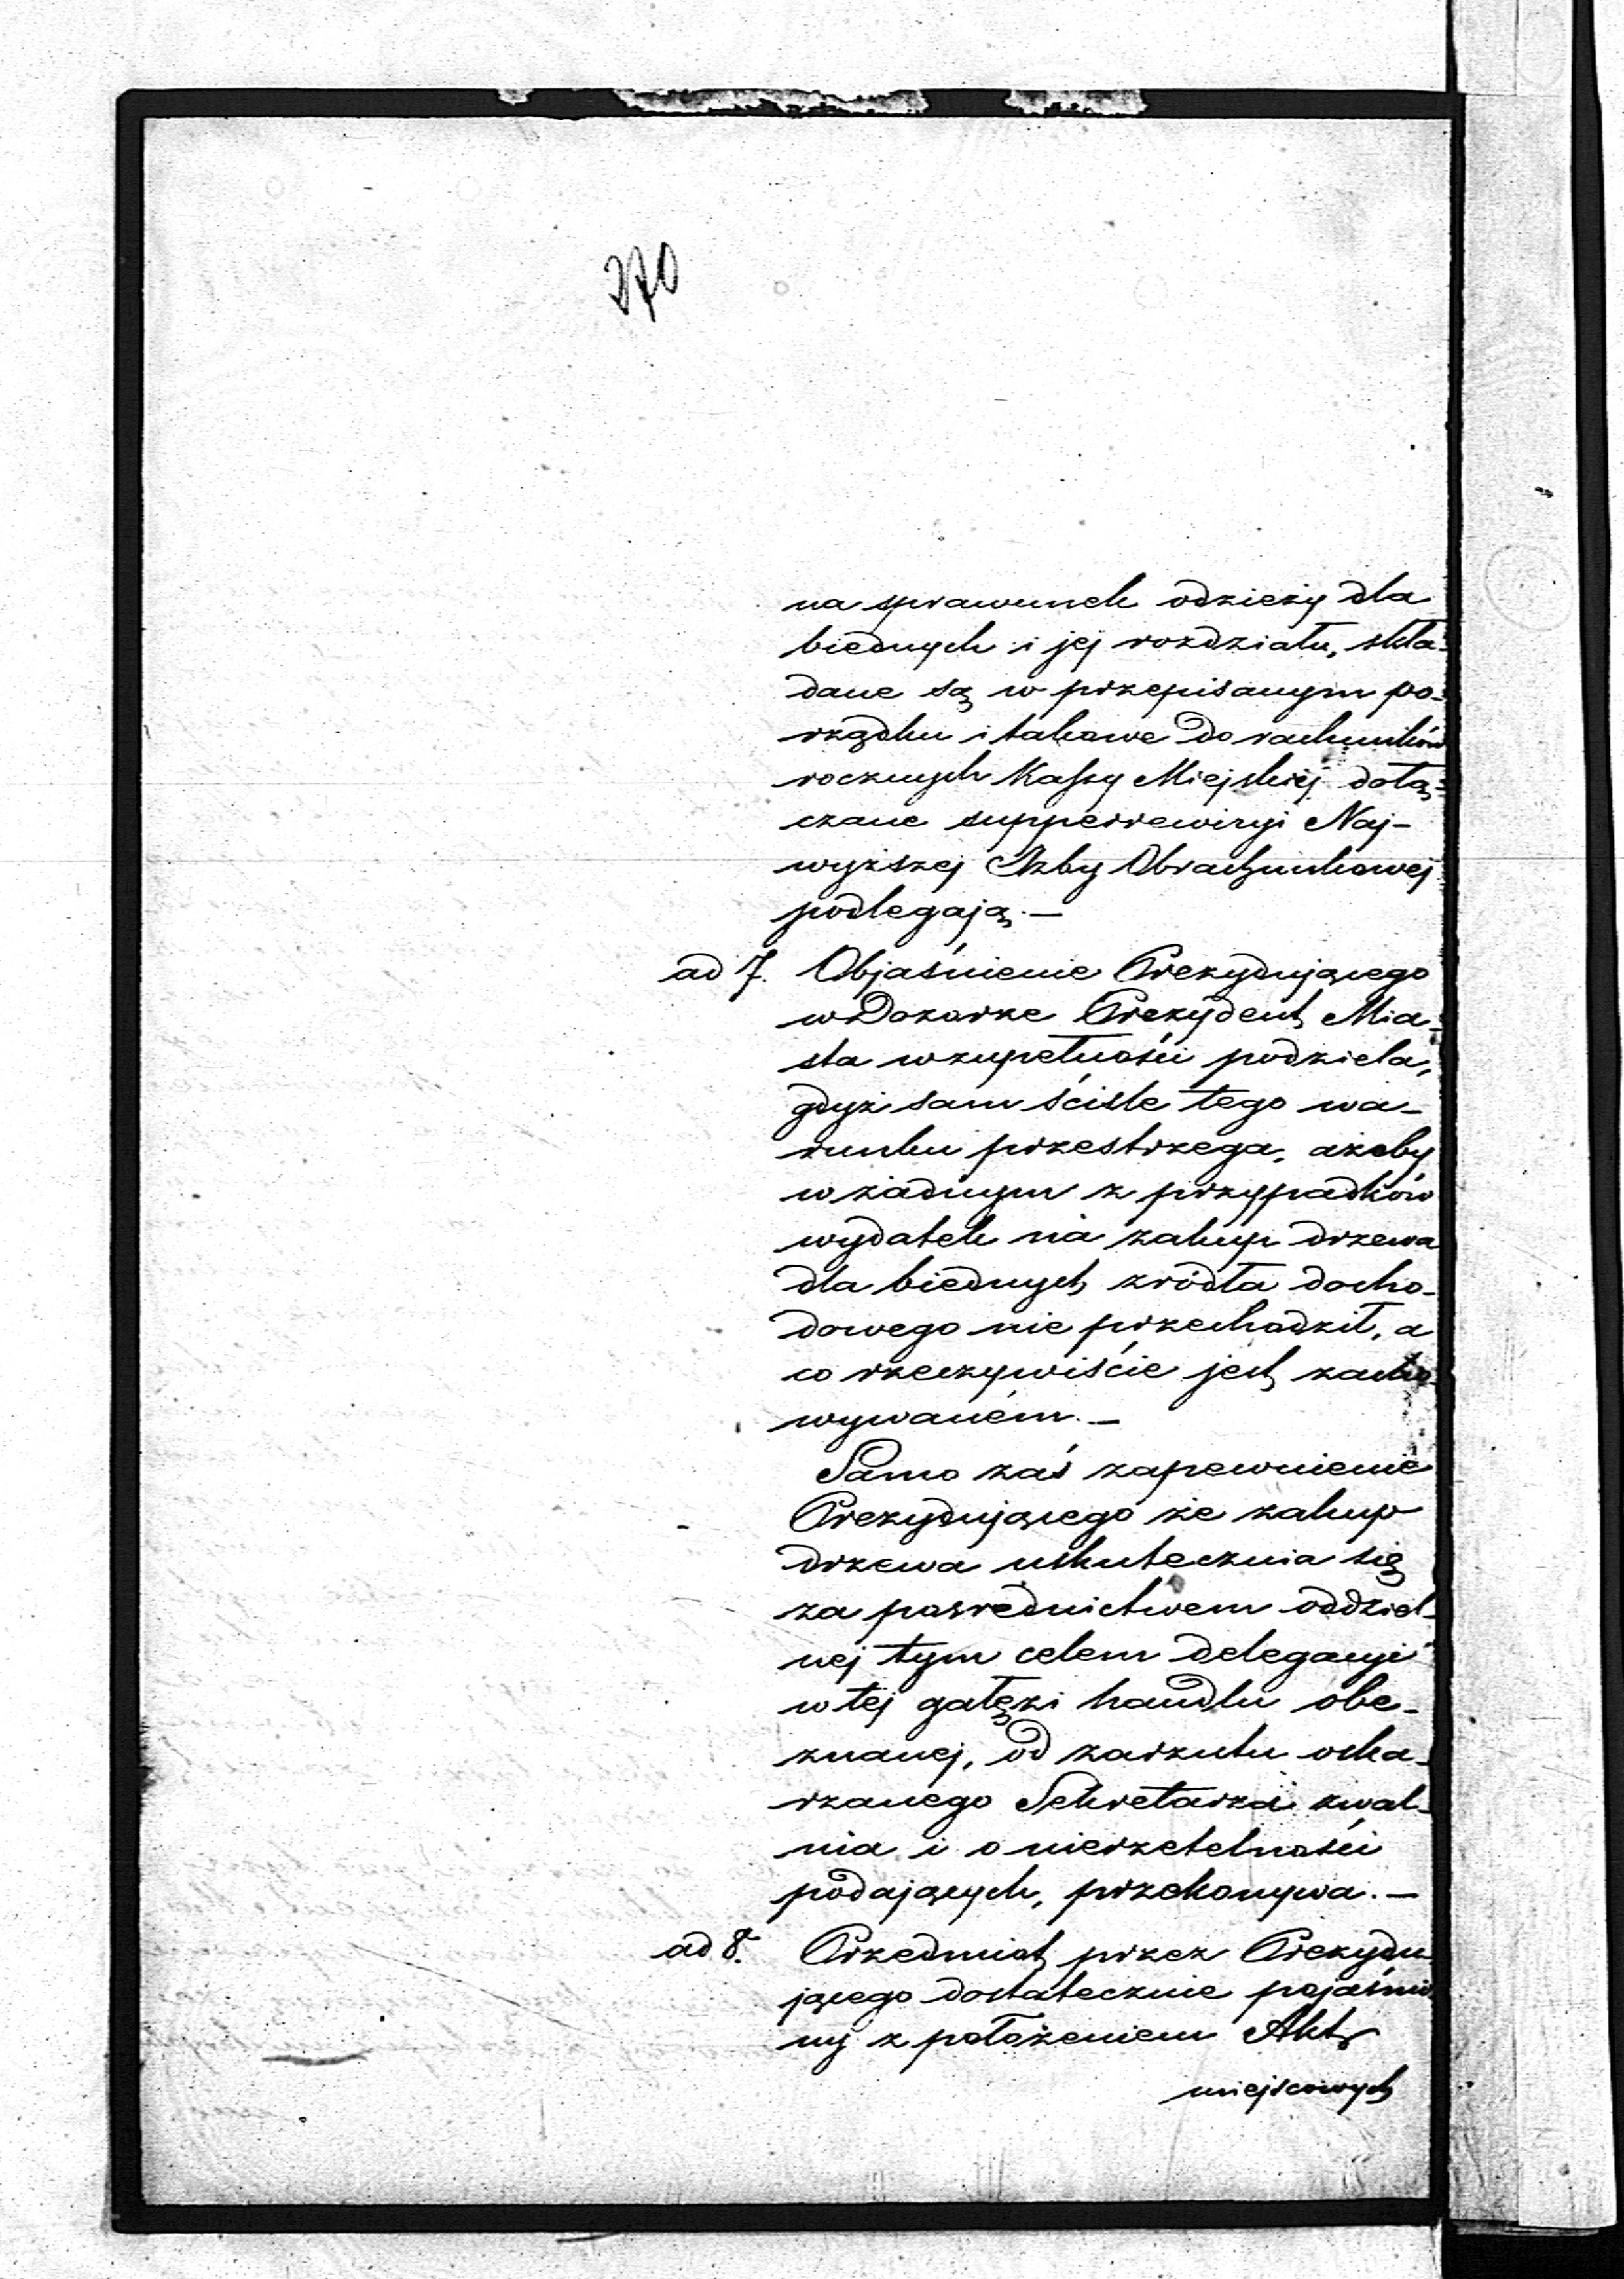 270
na sprawunek odzieży dla
biednych i jej rozdziału, skła-
dane są w przepisanym po-
rządku i takowe do rachunków
rocznych Kassy Miejskiej dołą-
czane supperrewizyi Naj-
wyższej Izby Obrachunkowej
podlegają. —
ad 7. Objaśnienie Prezydującego
w Dozorze Prezydent Mia-
sta w zupełności podziela,
gdyż sam ściśle tego wa-
runku przestrzega, ażeby
w żadnym z przypadków
wydatek na zakup drzewa
dla biednych źródła docho-
dowego nie przechodził, a
co rzeczywiście jest zacho-
wywaném. —
Samo zaś zapewnienie
Prezydującego że zakup
drzewa uskutecznia się
za pośrednictwem oddziel-
nej tym celem delegacyi
w tej gałęzi handlu obe-
znanej, od zarzutu oska-
rżanego Sekretarza zwal-
nia i o nierzetelności
podających, przekonywa. —
ad 8. Przedmiot przez Prezydu-
jącego dostatecznie pojaśnio-
ny z położeniem Akt
miejscowych